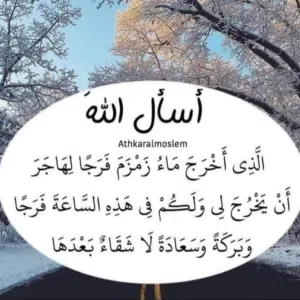 أسأل اللهَ
Athkaralmoslem
الَّذِى أَخْرَجَ مَاءُ زَمْزَمَ فَرَجًا لِهَاجَرَ
أَنْ يَخْرُجَ لِى وَلَكُمْ فِى هَذِهِ السَّاعَةَ فَرَجًا
وَبَرَكَةً وَسَعَادَةً لَا شَقَاءٌ بَعْدَهَا